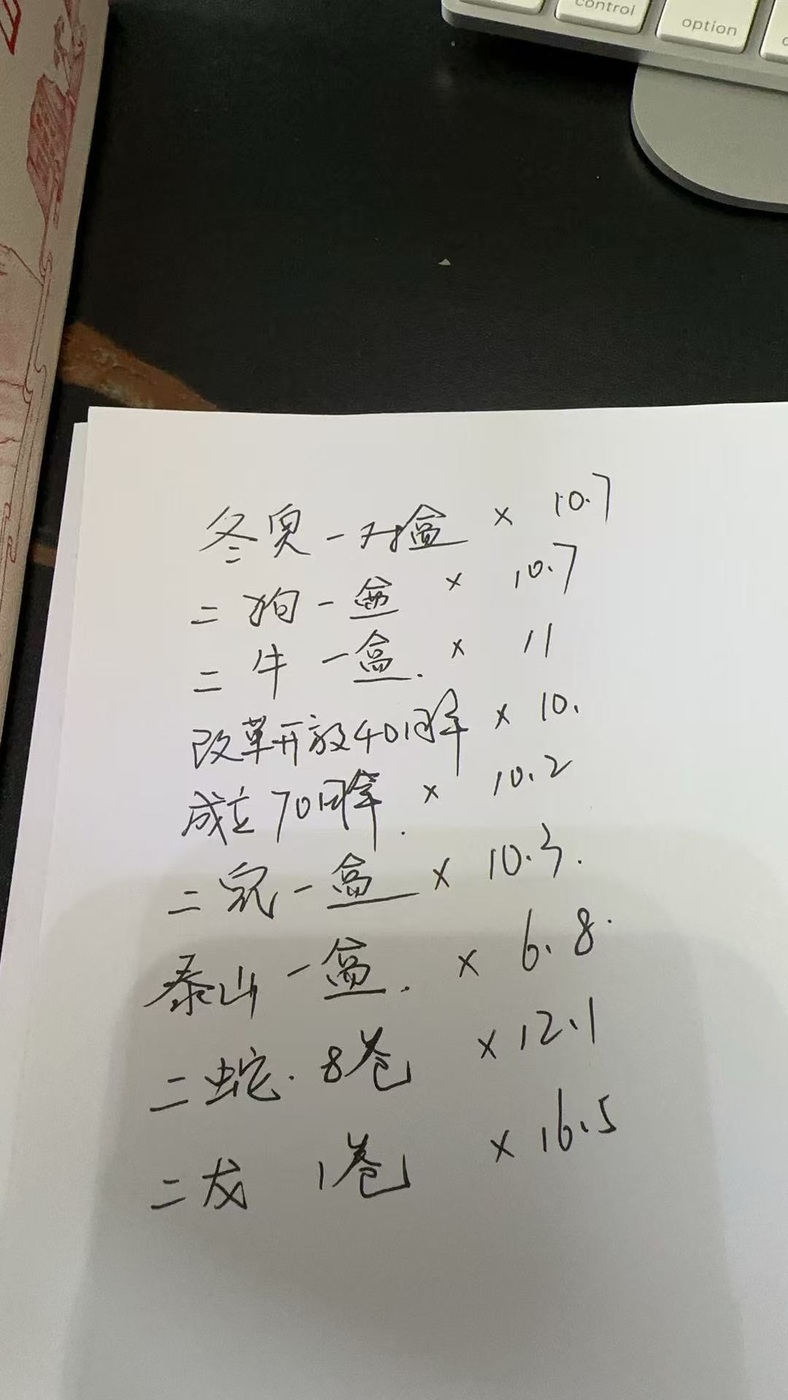 control
option
冬奥一对盒 × 10.7
二狗一盒 × 10.7
二牛一盒. × 11
改革开放40周年 × 10.
成立70周年. × 10.2
二兔一盒 × 10.3.
泰山一盒. × 6.8.
二蛇. 8卷 × 12.1
二龙 1卷 × 16.5